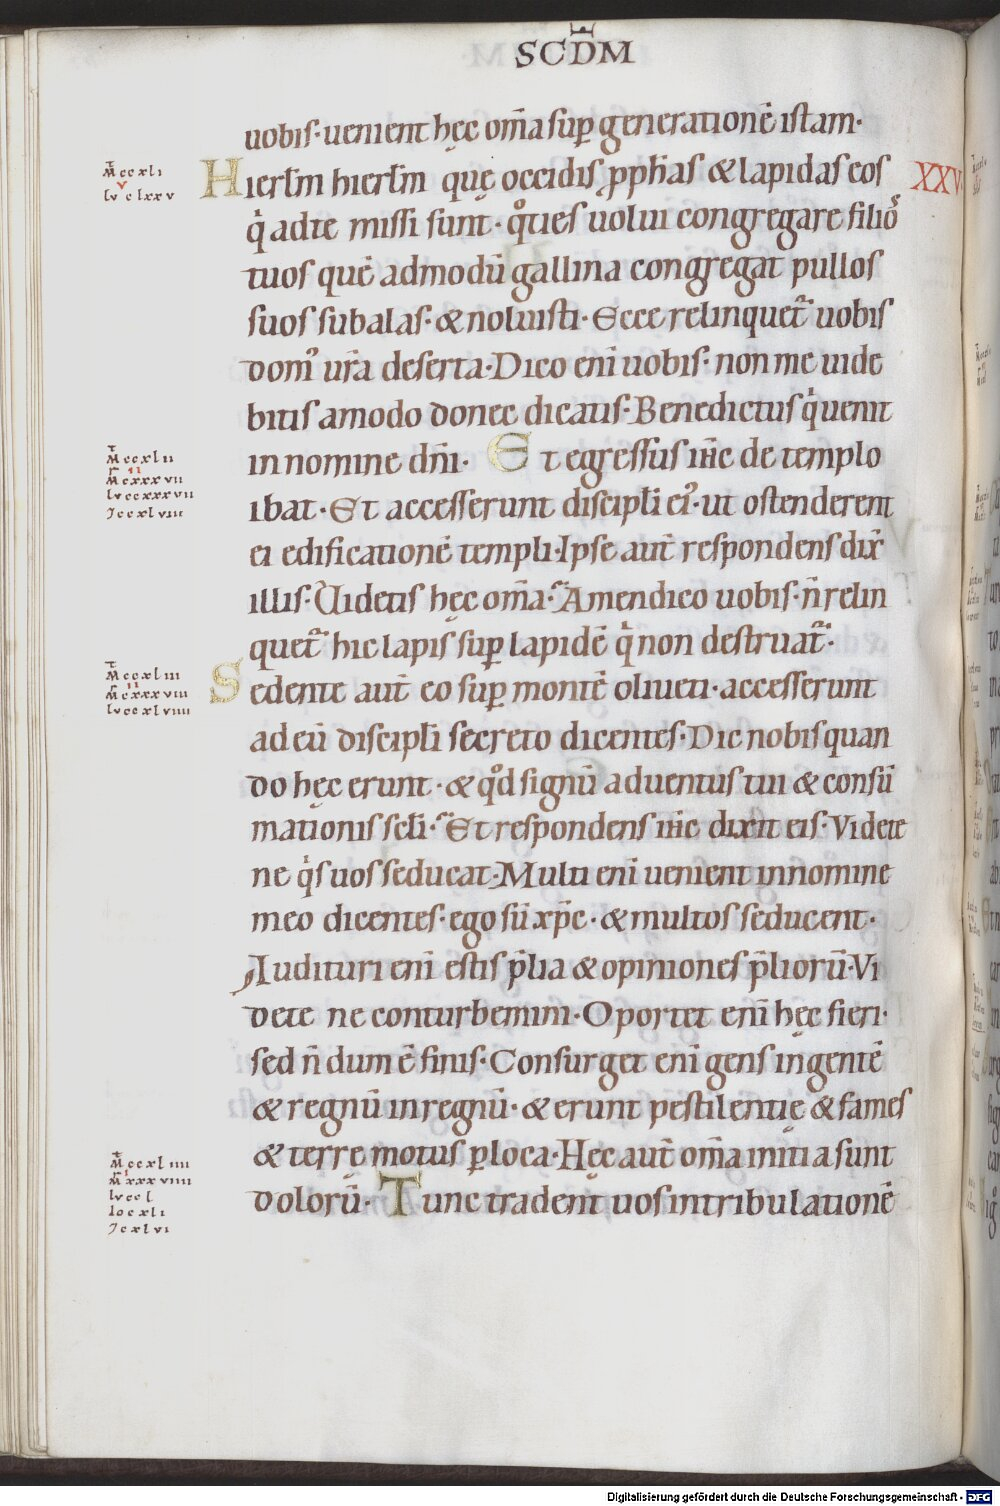 SCD̄M
uobis· uenient hęc om̄a sup̱ generationē istam·
M̄ ccxli
v
lv c lxxv
Hierłm hierłm quę occidis p̱ph̄as & lapidas eos
XXV
q̇ ad te missi sunt̄· qͦties uolui congregare filioˢ
tuos quē admodū gallina congregat pullos
suos sub alas· & noluisti· Ecce relinquet᷑ uobis
domꝰ ur̄a deserta· Dico eni̅ uobis· non me uide
bitis amodo donec dicatis· Benedictus q̇ uenit
M̄ ccxlii
ii
M̄ cxxxvii
lv ccxxxvii
J ccxlviii
in nomine dn̄i· Et egressus ih̄c de templo
ibat· Et accesserunt discipłi eiꝰ· ut ostenderent
ei edificationē templi· Ipse aut̄ respondens dix̄
illis· Videtis hęc om̄a· Amen dico uobis· n̄ relin
quet᷑ hic lapis sup̱ lapidē q̇ non destruat᷑·
M̄ ccxliii
ii
M̄ cxxxviii
lv ccxlviiii
Sedente aut̄ eo sup̱ montē oliueti· accesserunt
ad eū discipłi secreto dicentes· Dic nobis quan
do hęc erunt· & qͦd signū aduentus tui & consū
mationis sc̄łi· Et respondens ih̄c dixit eis· Videte
ne q̇s uos seducat· Multi eni̅ uenient in nomine
meo dicentes· ego sū xp̄c· & multos seducent·
Audituri eni̅ estis p̄lia & opiniones p̄liorū· Vi
dete ne conturbemini· Oportet eni̅ hęc fieri·
sed n̄ dum ē finis· Consurget eni̅ gens in gentē
& regnū in regnū· & erunt pestilentię & fames
& terrę motus p̱ loca· Hęc aut̄ om̄a initia sunt
M̄ ccxliiii
i
M̄ xxxviiii
lv ccl
Io cxli
J cxlvi
dolorū· Tunc tradent̄ uos in tribulationē
Digitalisierung gefördert durch die Deutsche Forschungsgemeinschaft - DFG